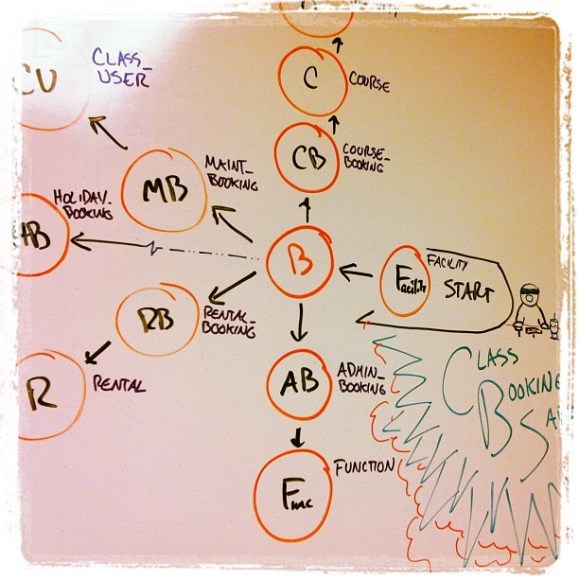 CU
CLASS_
USER
C
COURSE
CB
COURSE_
BOOKING
MB
MAINT_
BOOKING
HOLIDAY_
BOOKING
HB
B
Facility
FACILITY
START
RB
RENTAL_
BOOKING
R
RENTAL
AB
ADMIN_
BOOKING
CLASS
BOOKING
FUNCTION
Func